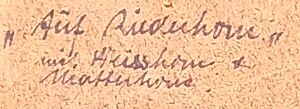 „Auf Riederhorn„
mit Weisshorn &
Matterhorn